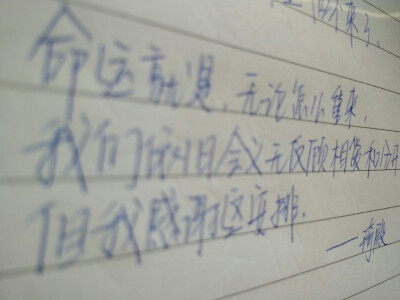 来了、
命运就是，无论怎么重来，
我们依旧会义无反顾相爱和分开
但我感谢这安排.